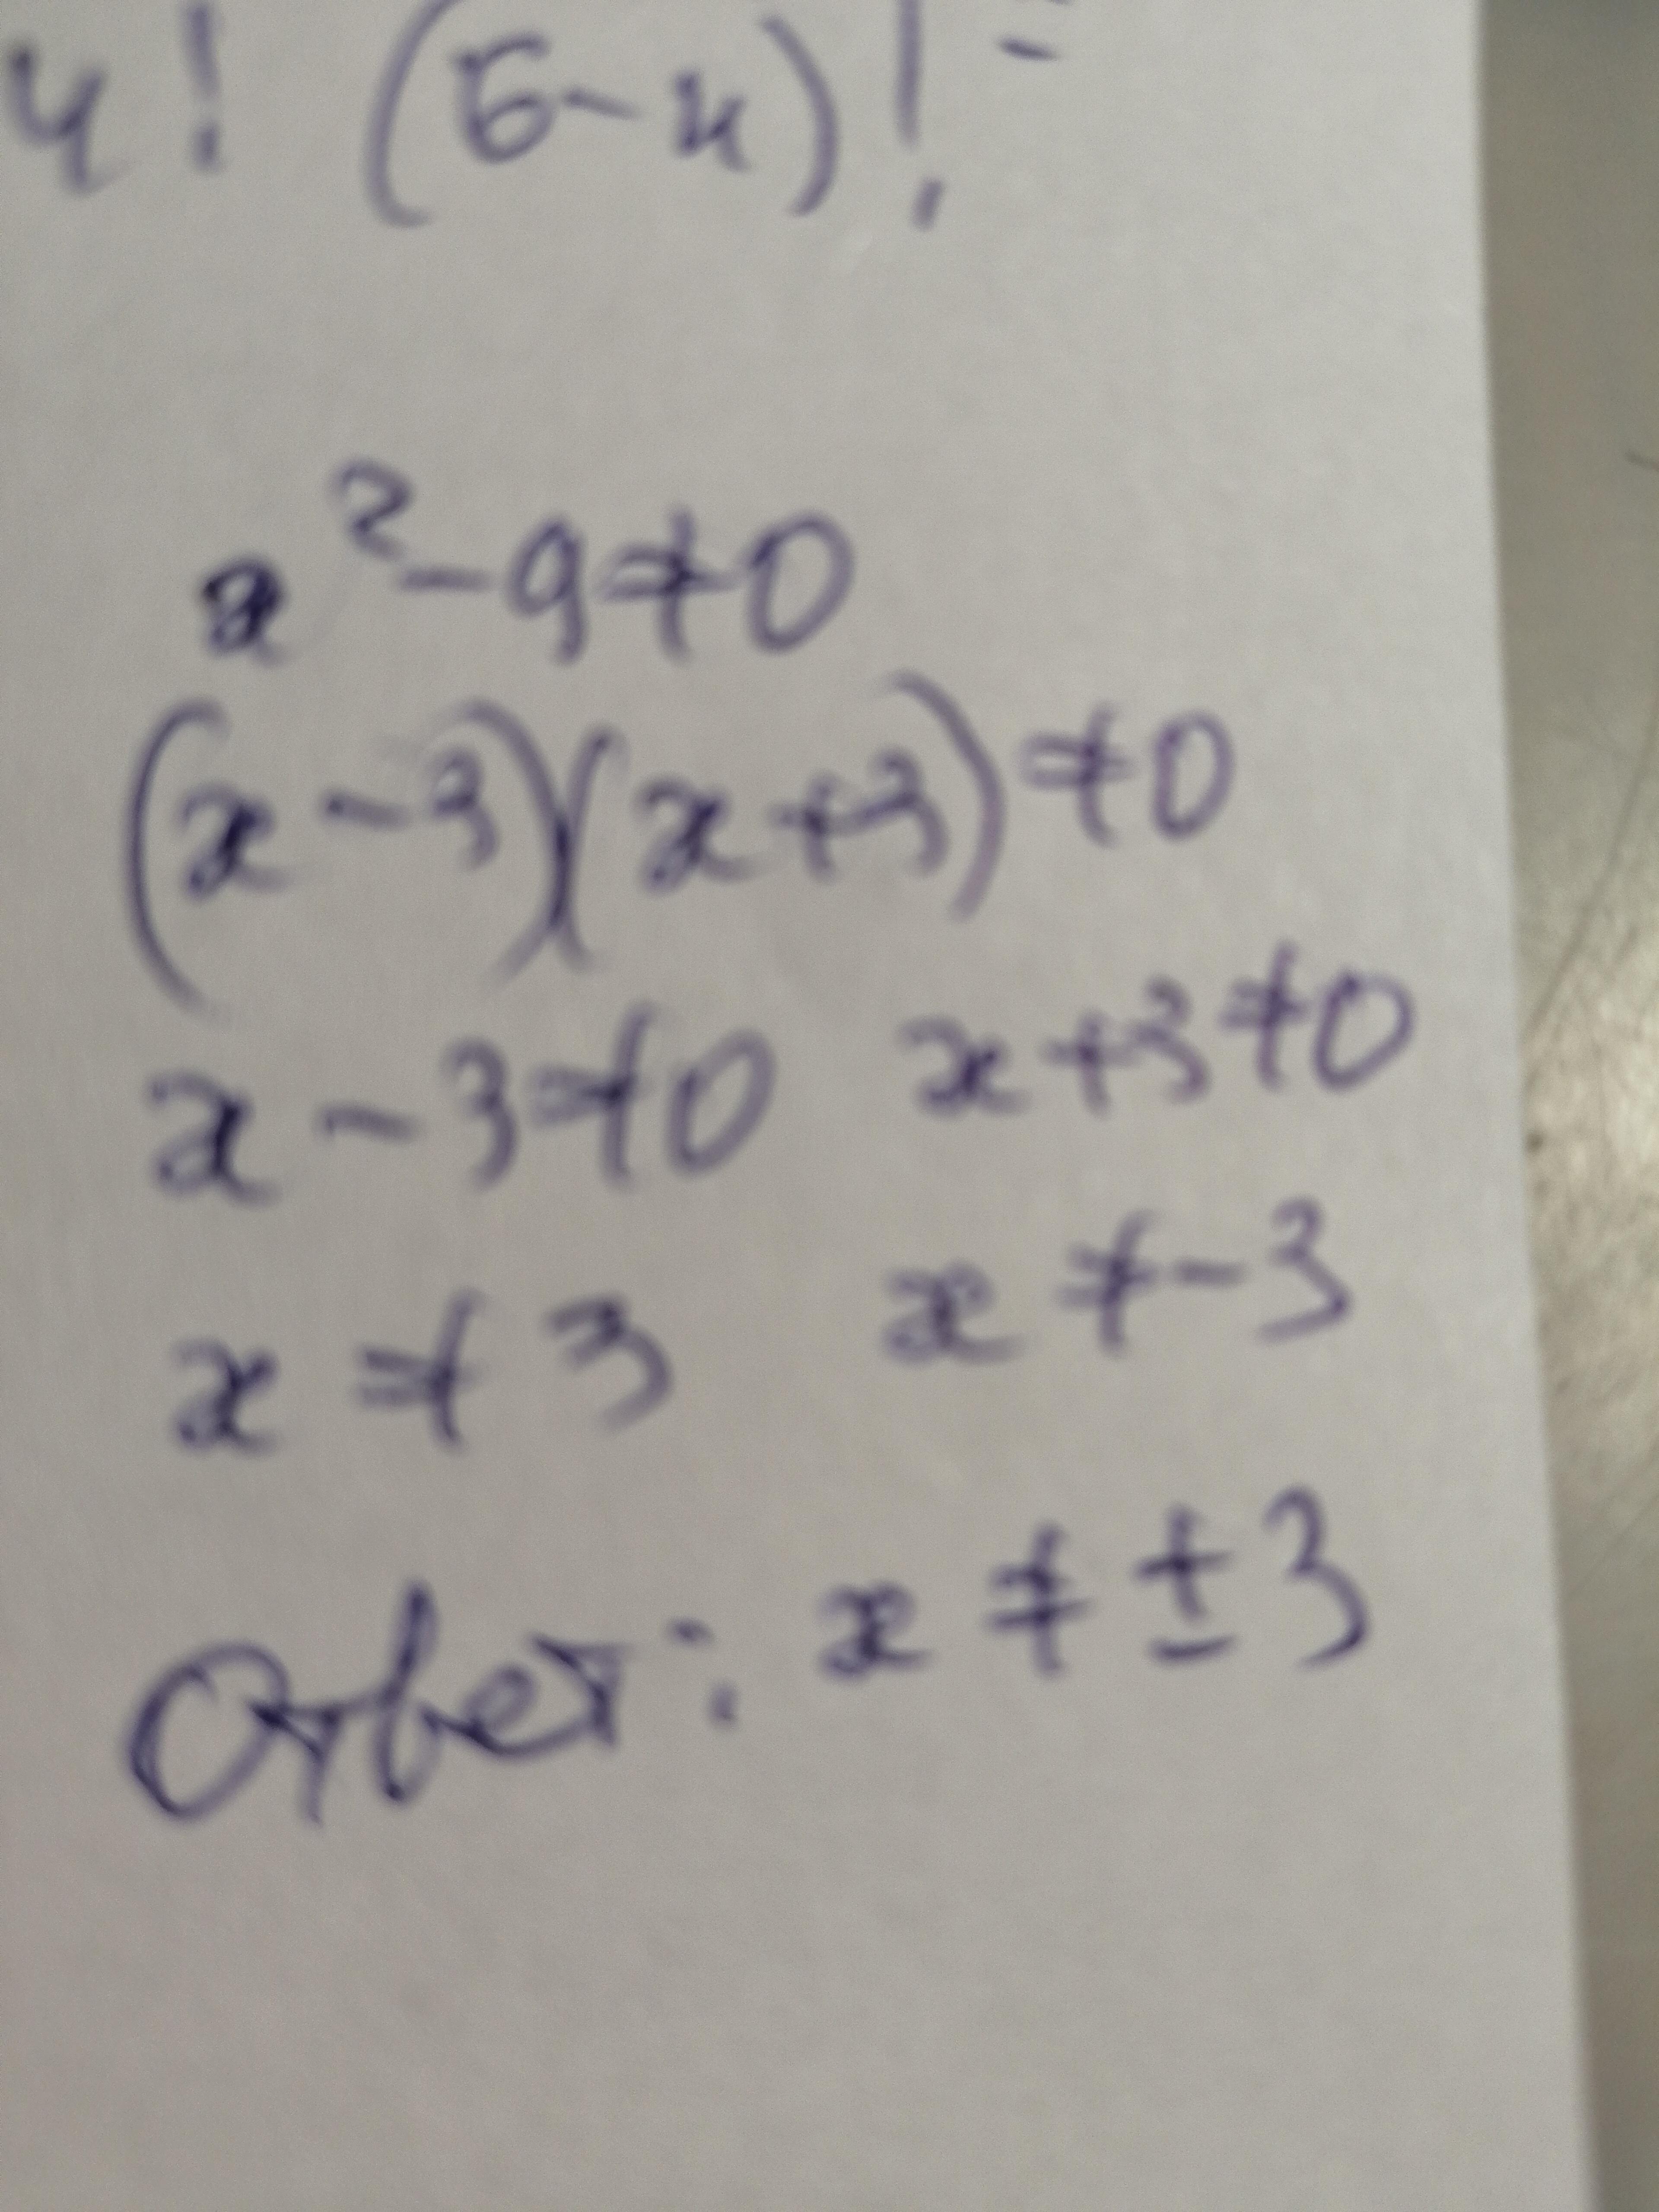 4! (5-4)! =
x²-9≠0
(x-3)(x+3)≠0
x-3≠0 x+3≠0
x≠3 x≠-3
Ответ: x≠±3